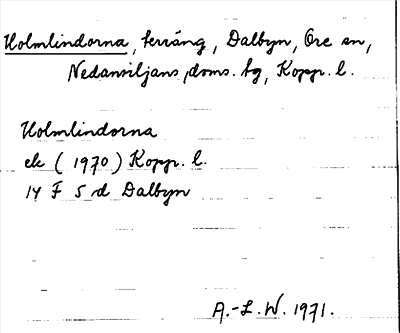 Holmlindorna, terräng, Dalbyn, Ore sn,
Nedansiljans doms. tg, Kopp. l.
Holmlindorna
ek (1970) Kopp. l.
14 F 5 d Dalbyn
A.-L. W. 1971.